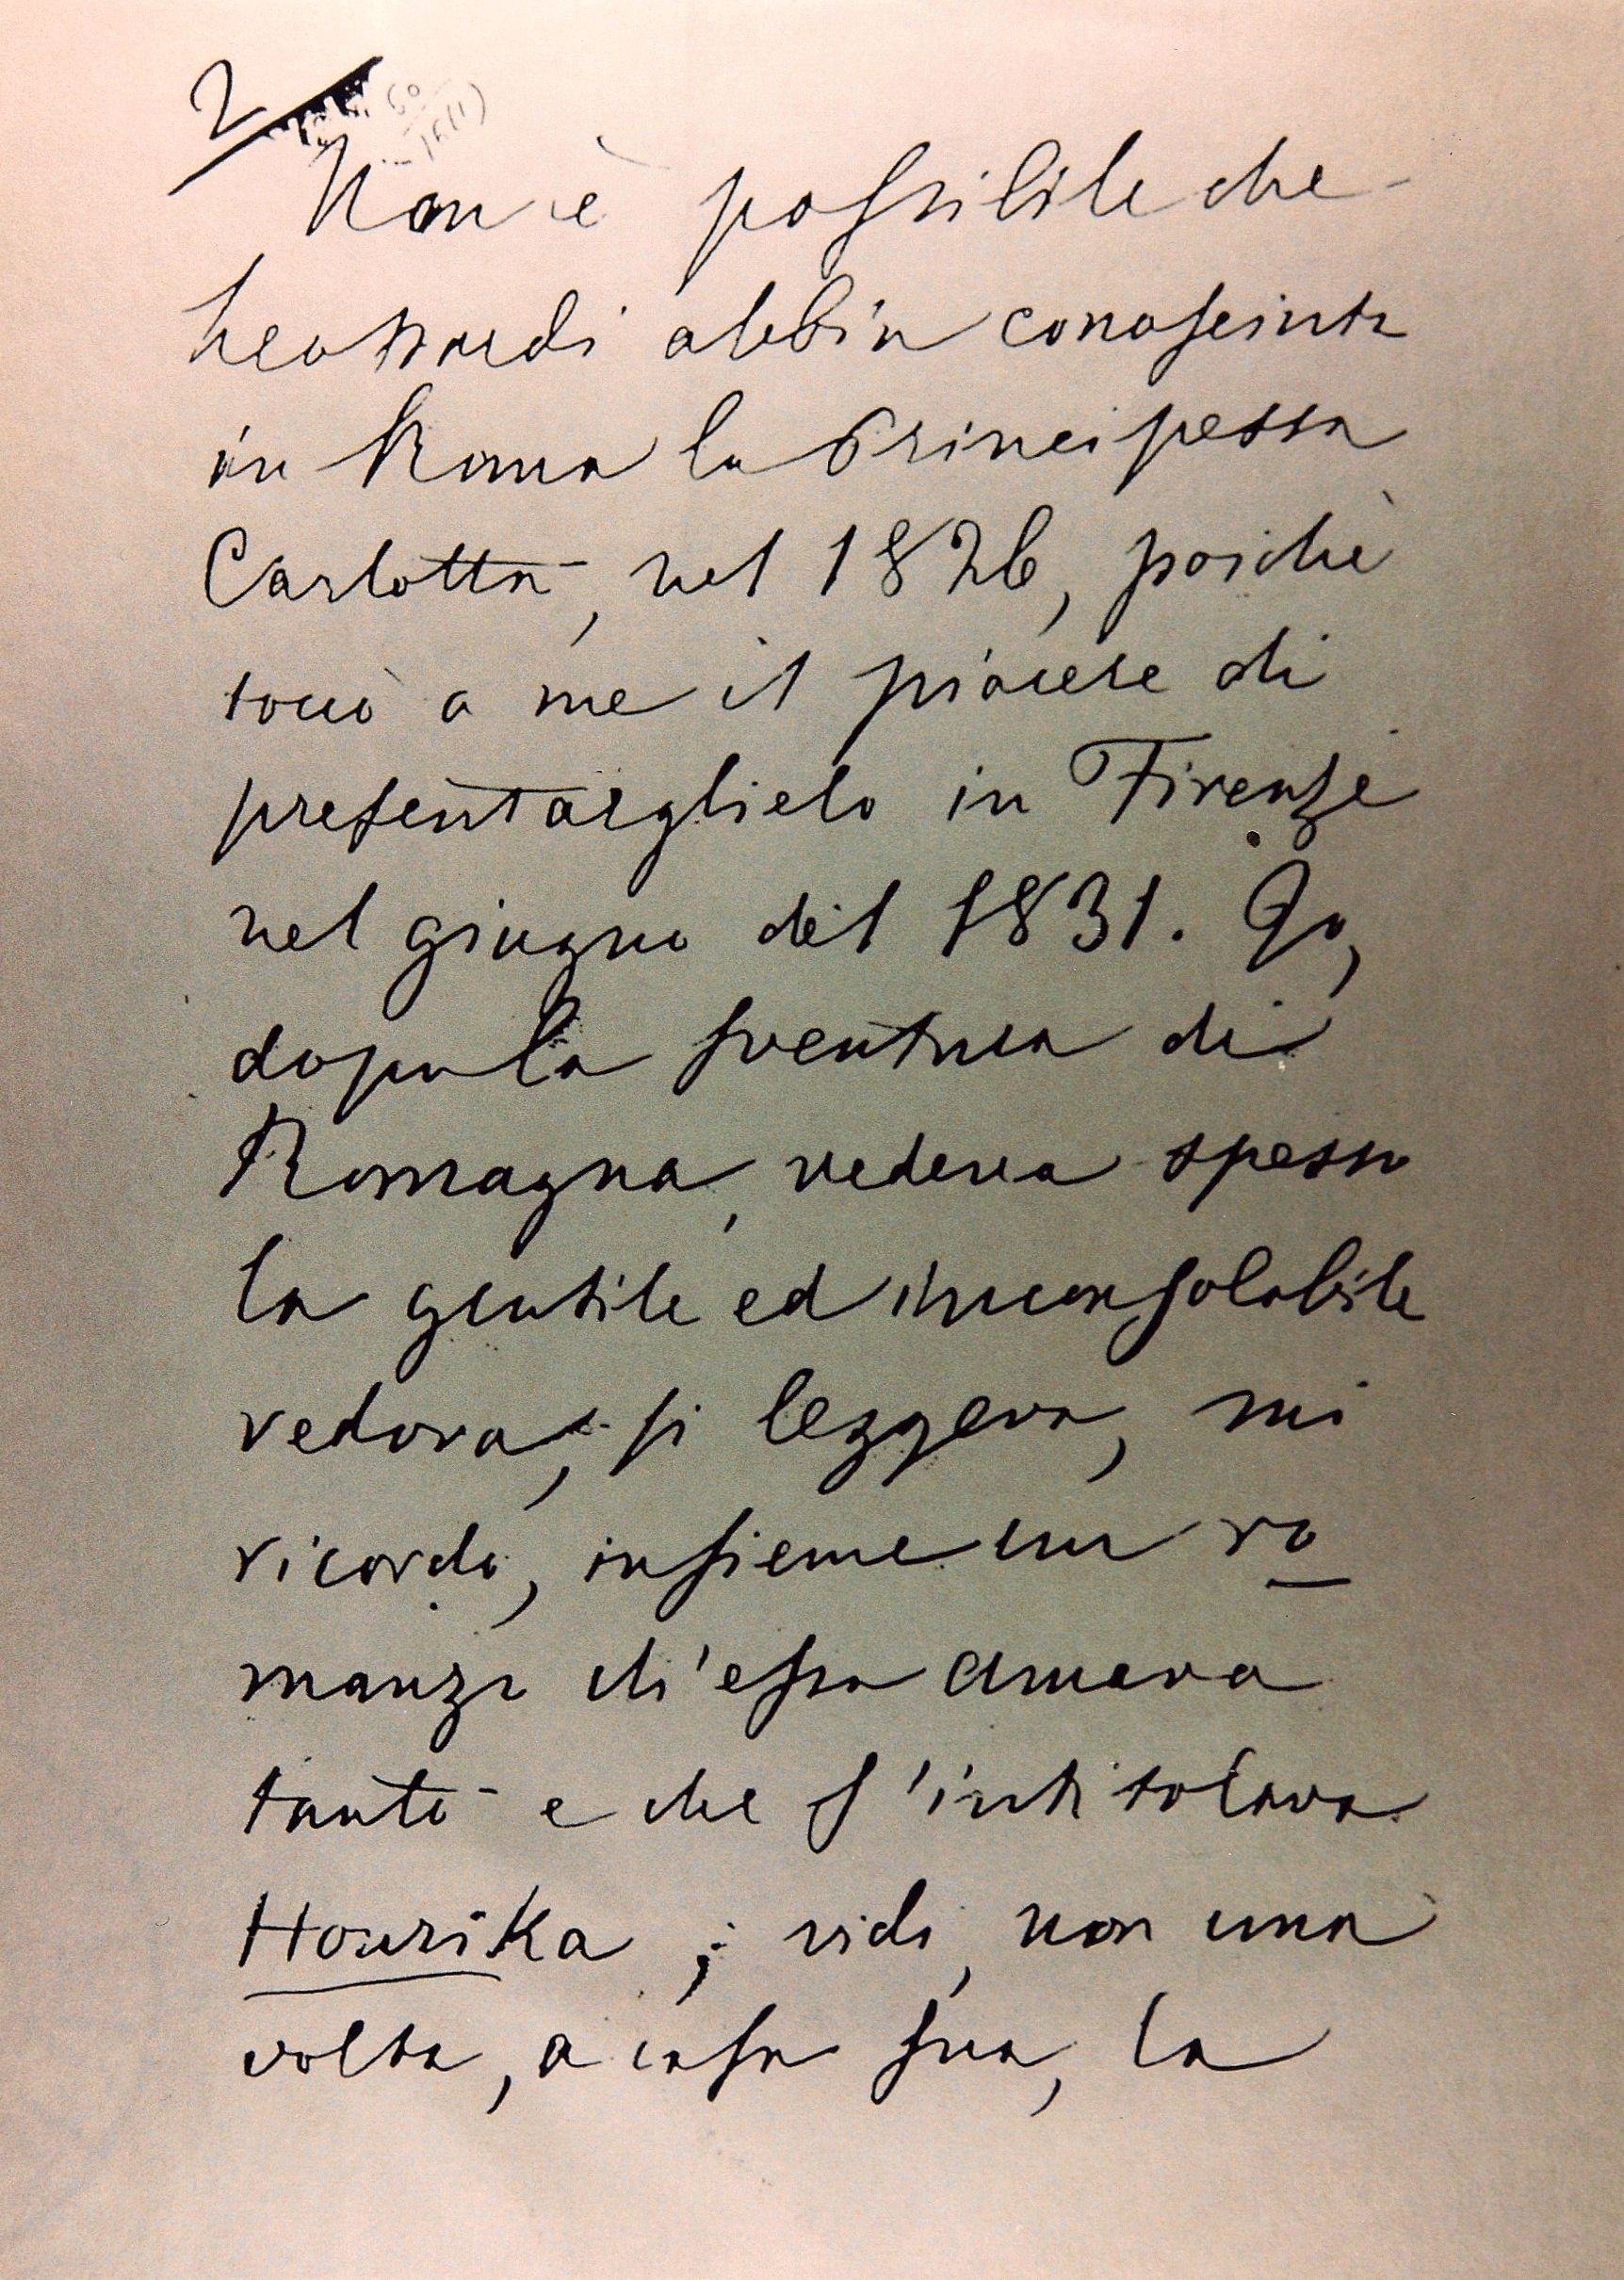 2
Non è possibile che
Leopardi abbia conosciuta
in Roma la Principessa
Carlotta, nel 1826, poichè
toccò a me il piacere di
presentarglielo in Firenze
nel giugno del 1831. Io,
dopo la sventura di
Romagna, vedeva spesso
la gentile ed inconsolabile
vedova, si leggeva, mi
ricordo, insieme un ro
manzo ch'essa amava
tanto e che s'intitolava
Hourika; vidi, non una
volta, a casa sua, la